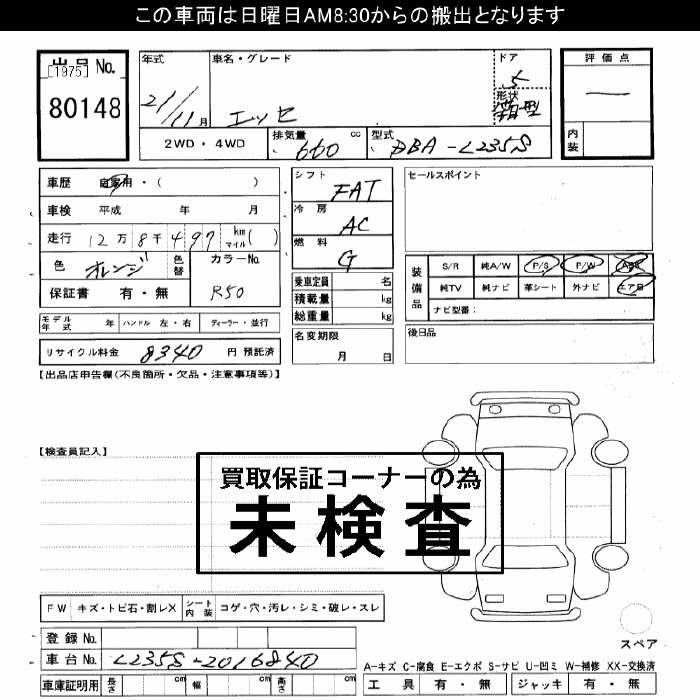 この車両は日曜日AM8:30からの搬出となります
出品No.
[1975]
80148
年式
21/11月
車名・グレード
エッセ
ドア
5
形状
箱型
評価点
—
内装
2WD・4WD
排気量 660 cc
型式 DBA-L235S
車歴 自家用・( )
車検 平成 年 月
走行 12万8千497 km マイル ( )
色 オレンジ 色替
カラーNo. R50
保証書 有・無
モデル年式 年 ハンドル 左・右 ディーラー・並行
リサイクル料金 8340 円 預託済
シフト FAT
冷房 AC
燃料 G
乗車定員 名
積載量 kg
総重量 kg
名変期限
月 日
セールスポイント
装備品
S/R 純A/W P/S P/W ABS
純TV 純ナビ 革シート 外ナビ エアB
ナビ型番:
後日品
【出品店申告欄(不良箇所・欠品・注意事項等)】
【検査員記入】
買取保証コーナーの為
未検査
FW キズ・トビ石・割レX シート内装 コゲ・穴・汚レ・シミ・破レ・スレ
登録No.
車台No. L235S-2016840
車庫証明用 長さ cm 幅 cm 高さ cm
スペア
A-キズ C-腐食 E-エクボ S-サビ U-凹ミ W-補修 XX-交換済
工具 有・無 ジャッキ 有・無